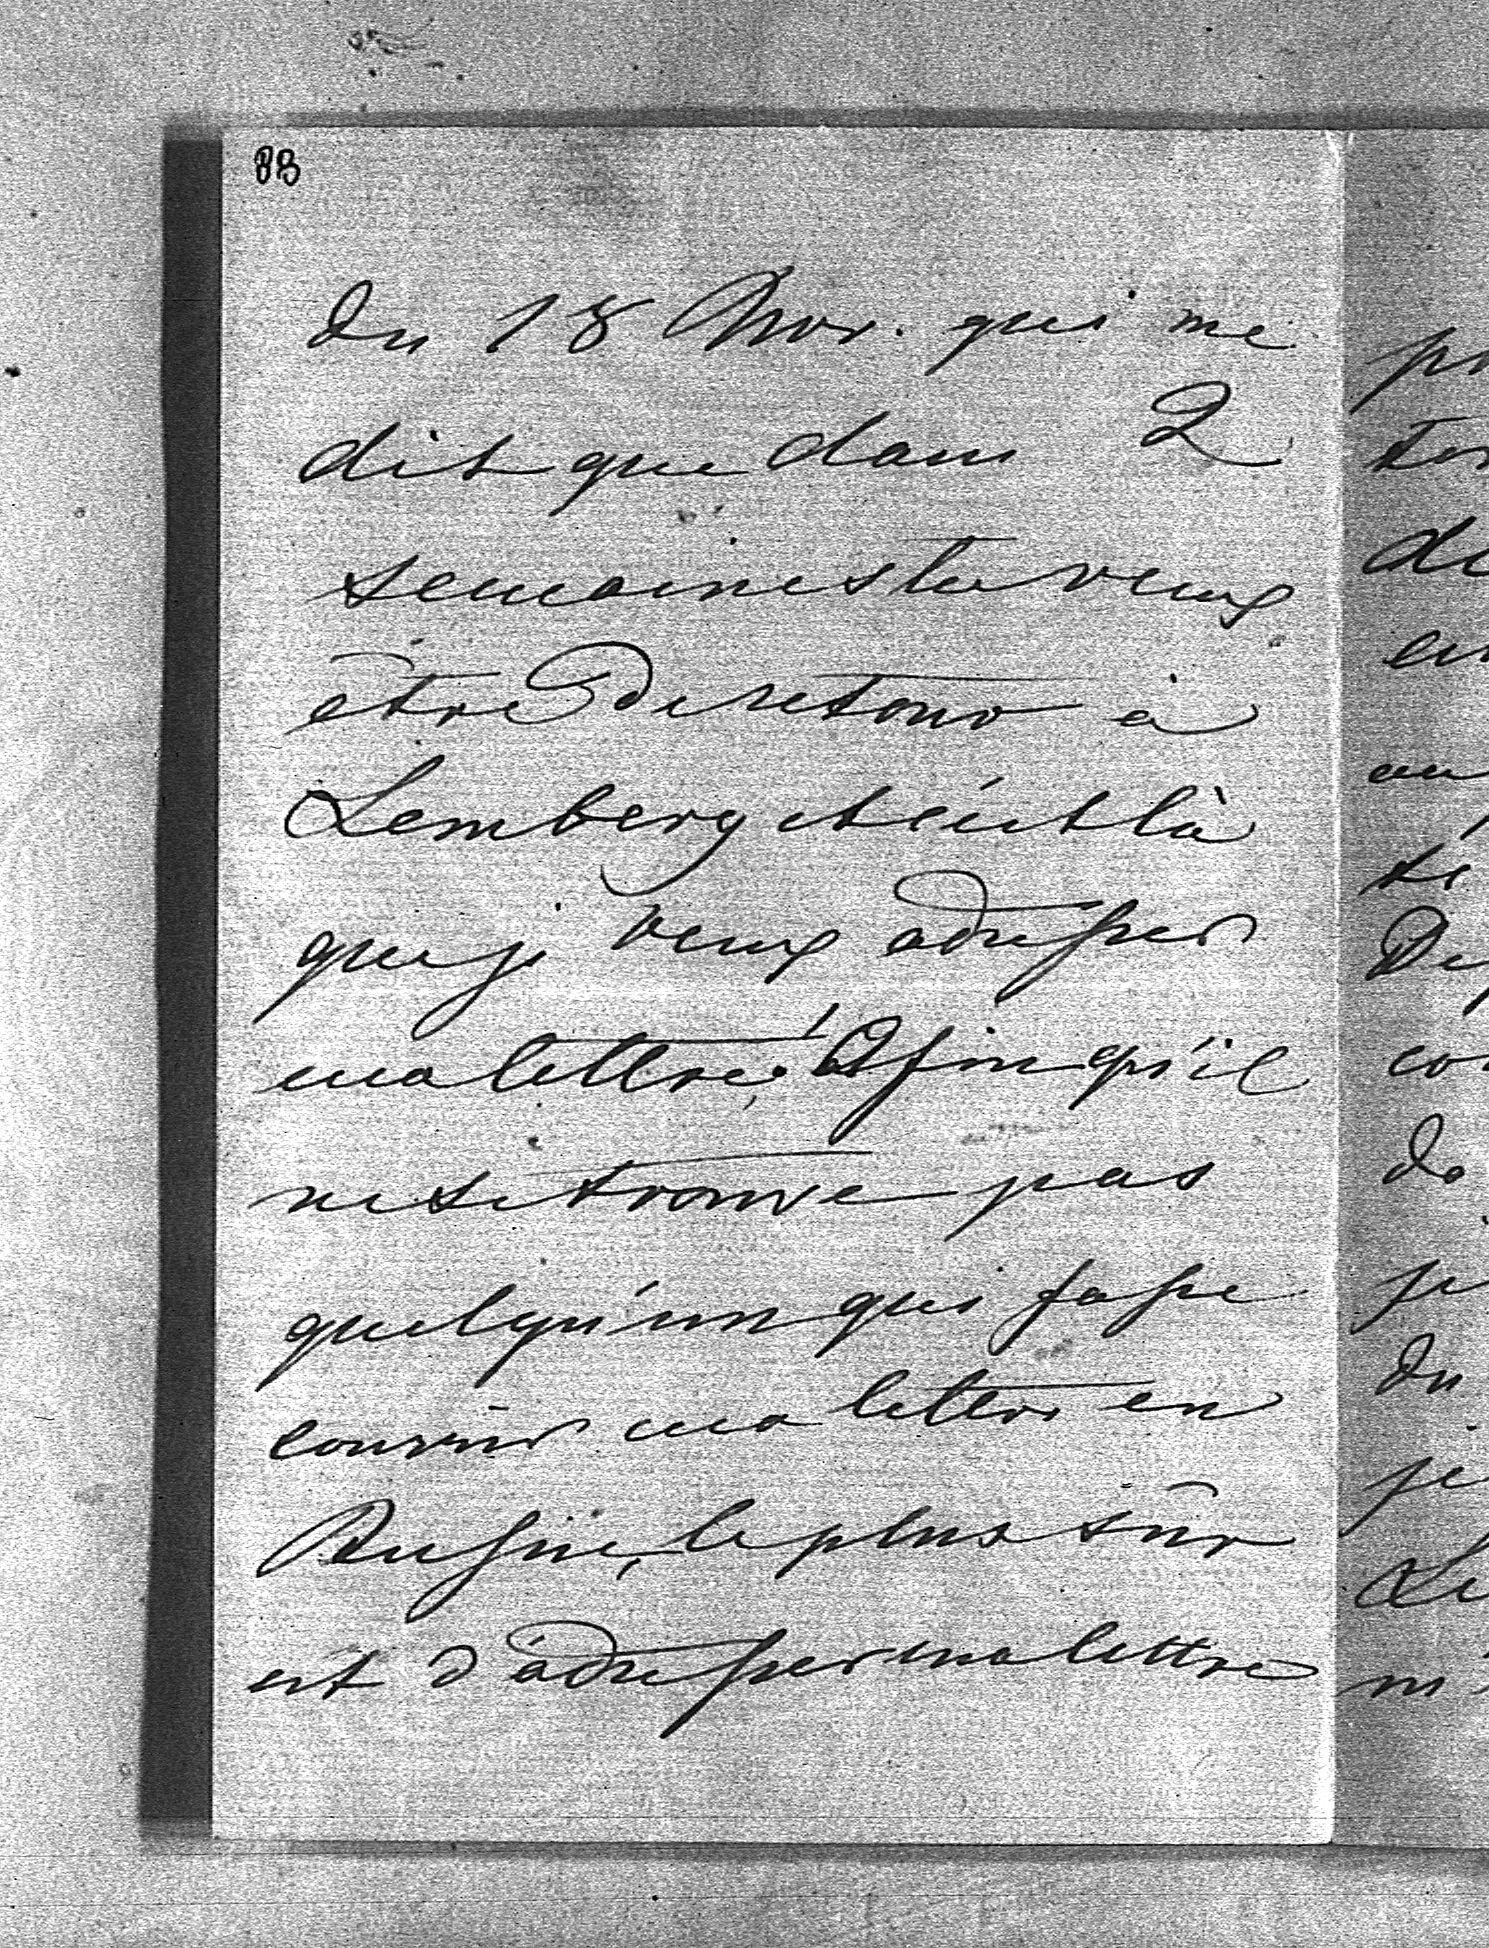 88
du 18 Nov. qui me
dit que dans 2
semaines tu veux
être de retour à
Lemberg et c'est là
que je veux adresser
ma lettre! Afin qu'il
ne se trouve pas
quelqu'un qui fasse
courrir ma lettre en
Russie, le plus sûr
est d'adresser ma lettre